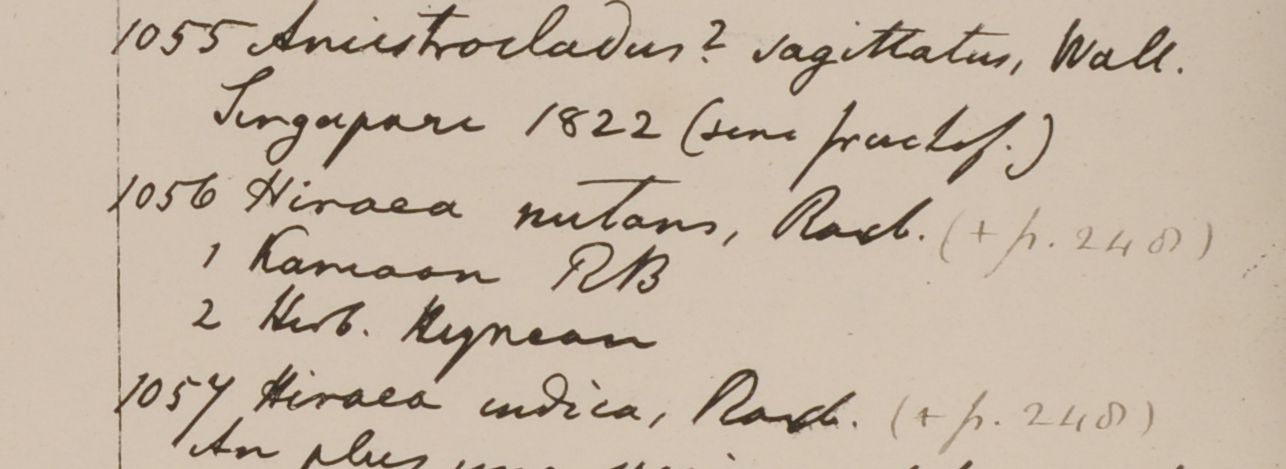 1055 Ancistrocladus? sagittatus, Wall.
Singapore 1822 (sine fructif.)
1056 Hiraea nutans, Roxb. (+ p. 248)
1 Kamaon RB
2 Herb. Heynean
1057 Hiraea indica, Roxb. (+ p. 248)
An plus